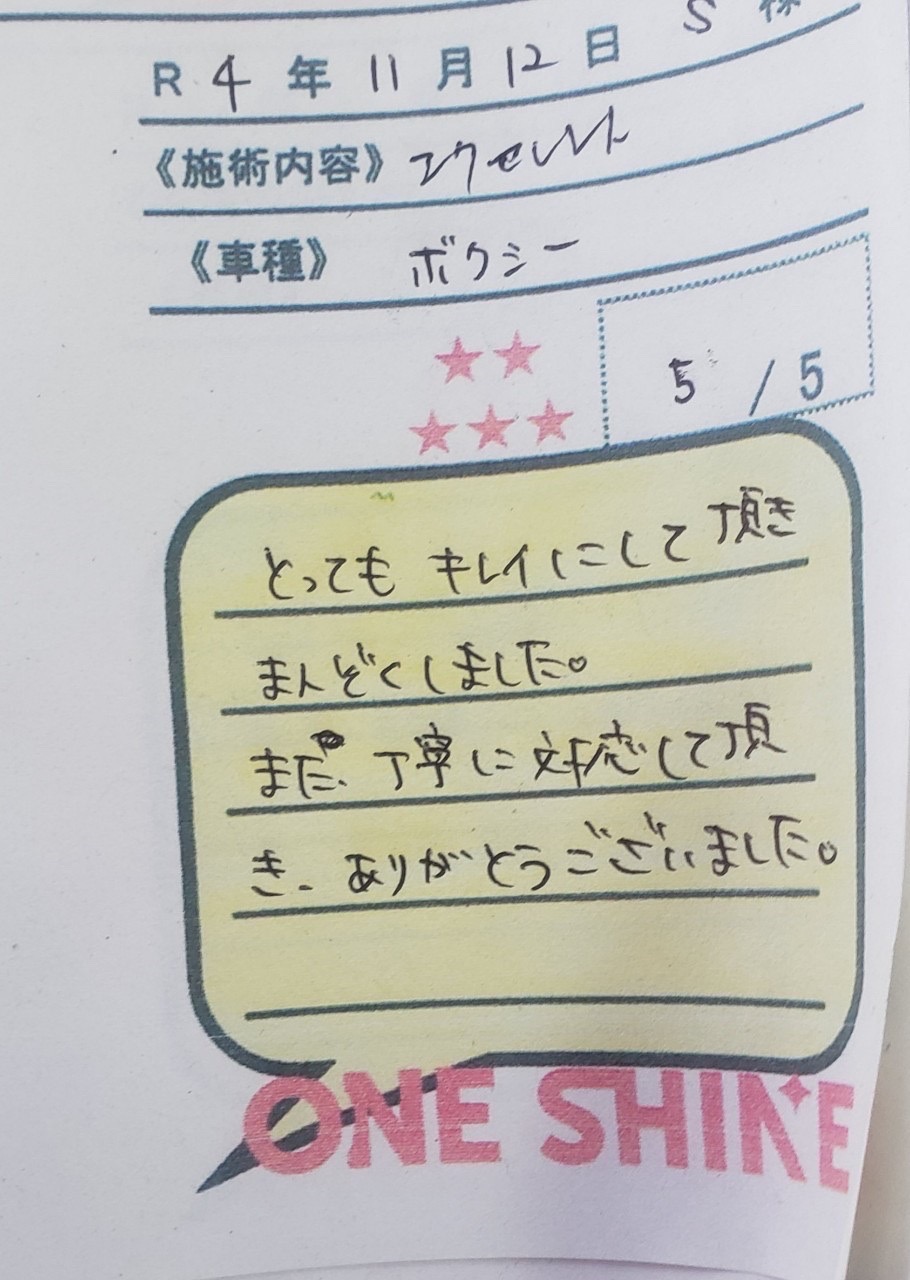 S 様
R 4 年 11 月 12 日
《施術内容》 エクセレント
《車種》 ボクシー
5 / 5
とっても キレイにして頂き
まんぞくしました。
また、丁寧に対応して頂
き、ありがとうございました。
ONE SHINE